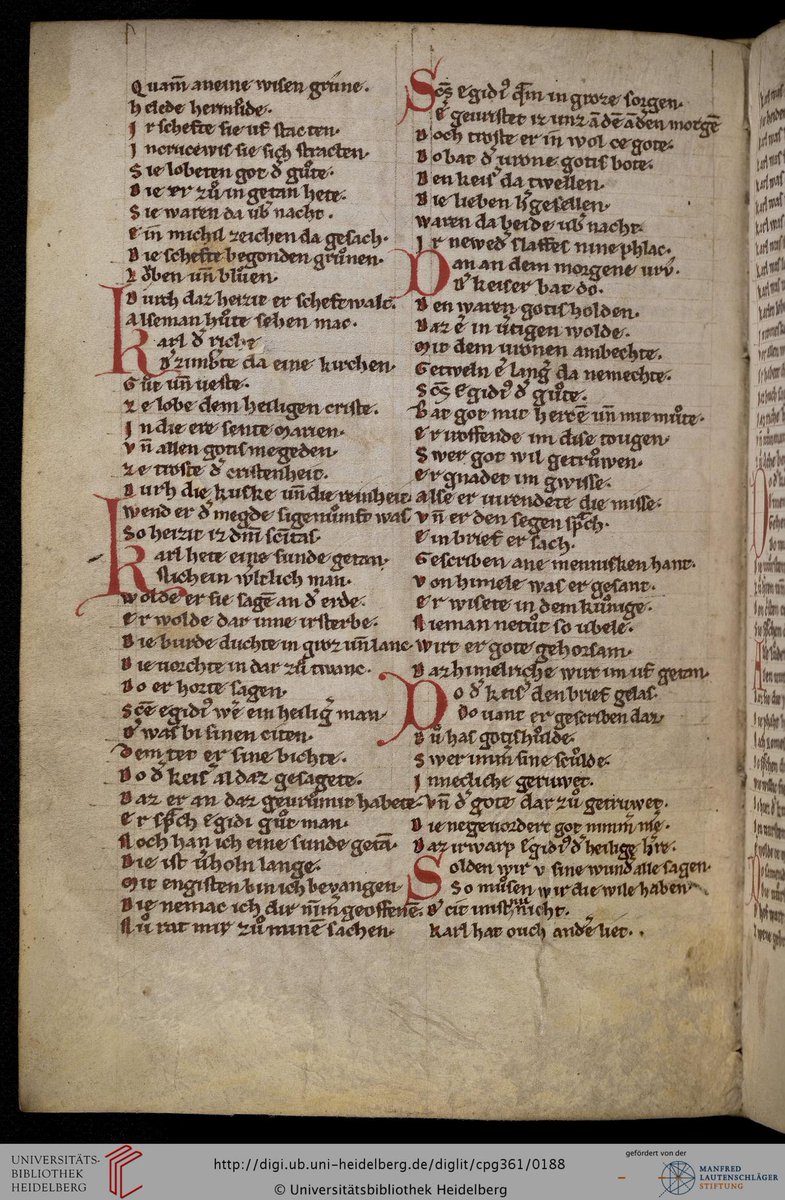 Quam̄ aneine wisen grůne.
helede hermůde.
Ir schefte sie uf stacten.
In crucewis sie sich stracten.
Sie lobeten got d̉ gůte.
Die er zů in getan hete.
Sie waren da ub̉ nacht.
Ein̄ michil zeichen da gesach.
Die schefte begonden grůnen.
Lo̊ben un̄ blůen.
Durch daz heizit er scheftwalt.
Alse man hůte sehen mac.
Karl d̉ riche
d̉ zimb̉te da eine kirchen.
Gůt un̄ veste.
Ze lobe dem heiligen criste.
In die ere sente Marien.
Vn̄ allen gotis megeden.
Ze troste d̉ cristenheit.
Durh die kuske un̄ die reinheit.
wend er d̉ megde sigenůmft was
So heizit iz dm̄ sc̄itas.
Karl hete eine sunde getan.
slich ein w̉ltlich man.
wolde er sie sagē an d̉ erde.
er wolde dar inne irsterbe.
Die burde duchte in groz un̄ lanc
Die vorchte in dar zů twanc.
Do er horte sagen.
Sc̄e egidi᾽ wē ein heilig̉ man.
D̉ was bi sinen citen.
Dem tet er sine bichte.
Do d̉ keis̉ al daz gesagete.
Daz er an daz gevrůmit habete.
Er sp̄ch egidi gůt man.
Noch han ich eine sunde getā.
Die ist v̉holn lange.
Mit engisten bin ich bevangen.
Die nemac ich dir nim̄ geoffenē.
Nů rat mir zů minē sachen.
Sc̄s egidi᾽ q̄m in groze sorgen.
Er gevristet iz unz ā dē ādēn morgē
Doch troste er in̄ wol ce gote.
Do bat d̉ vrone gotis bote.
Den keis̉ da twellen.
Die lieben h̉gesellen.
waren da beide ub̉ nacht.
Ir newed̉ slaffes nine phlac.
Dan an dem morgene vrů.
D̉ keiser bat do.
Den waren gotis holden.
Daz ē in v̉tigen wolde.
Mit dem vronen ambechte.
Getweln ē lang̉ da nemechte.
Sc̄s Egidi᾽ d̉ gůte.
Bat got mit herc̄e un̄ mit můte.
er uroffende im dise tougen.
Swer got wil getrůwen.
er gnadet im gwisse.
Alse er vurendete die misse.
vn̄ er den segen sp̄ch.
ein brief er sach.
Gescriben ane mennisken hant.
Von himele was er gesant.
er wisete in dem kůnige.
Nieman netůt so ubele.
wirt er gote gehorsam.
Daz himelriche wirt im uf getan.
Do d̉ keis̉ den brief gelas.
Do vant er gescriben daz
Dů has gotis hulde.
Swer im̄ sine sculde.
Innecliche geruwet.
vn̄ d̉ gote dar zů getruwet.
Die negevordert got nimm̄ mē.
Daz irwarp Egidi᾽ d̉ heilige h̉re.
Solden wir v̉ sine wund̉ alle sagen.
So můsen wir die wile haben
d̉ cit unst nicht.
Karl hat ouch andē liet.
UNIVERSITÄTS-
BIBLIOTHEK
HEIDELBERG
http://digi.ub.uni-heidelberg.de/diglit/cpg361/0188
© Universitätsbibliothek Heidelberg
gefördert von der
MANFRED
LAUTENSCHLÄGER
STIFTUNG